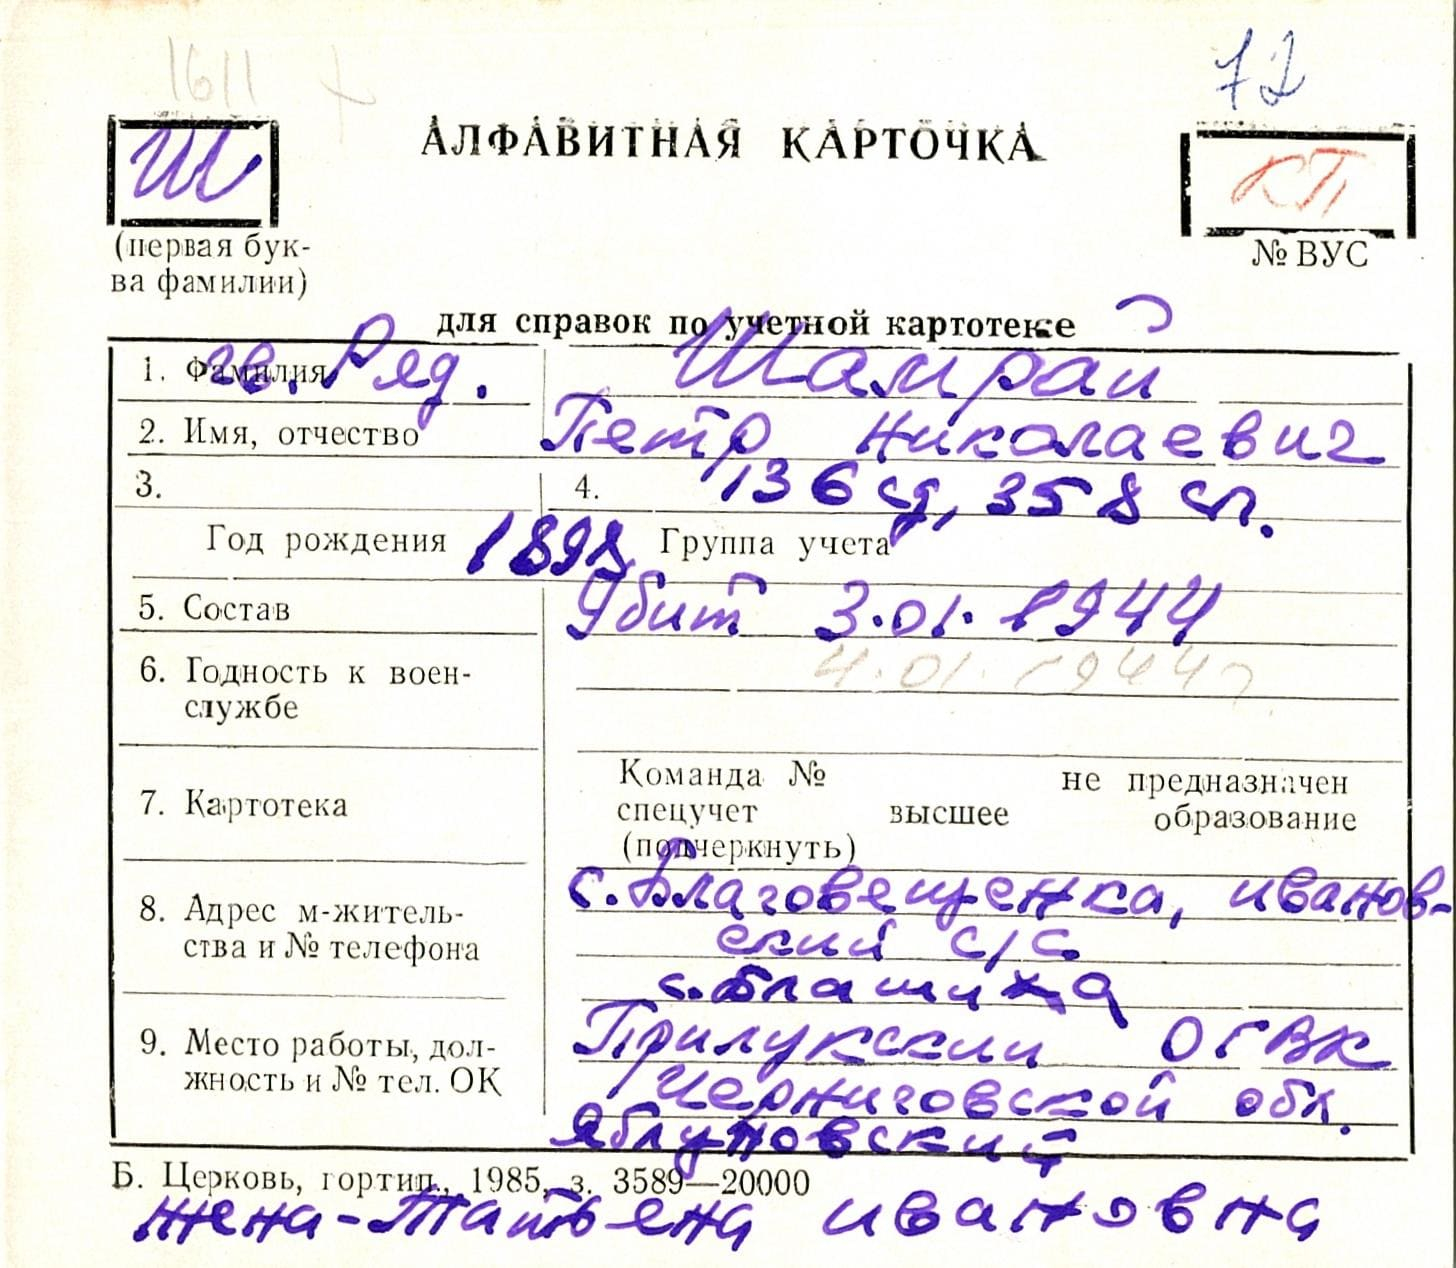 1611
72
Ш
АЛФАВИТНАЯ КАРТОЧКА
КП
(первая бук-
ва фамилии)
№ ВУС
для справок по учетной картотеке
1. Фамилия гв. Ряд. Шамрай
2. Имя, отчество Петр Николаевич
3. 4. 136 сд, 358 сп.
Год рождения 1898 Группа учета
5. Состав Убит 3.01.1944
6. Годность к воен-
службе
4.01.1944?
7. Картотека
Команда № не предназначен
спецучет высшее образование
(подчеркнуть)
8. Адрес м-житель-
ства и № телефона
с. Благовещенка, иванов-
ский с/с
9. Место работы, дол-
жность и № тел. ОК
Прилукский ОГВК
Черниговской обл.
Яблуновский
Б. Церковь, гортип., 1985, з. 3589—20000
жена - Татьяна ивановна